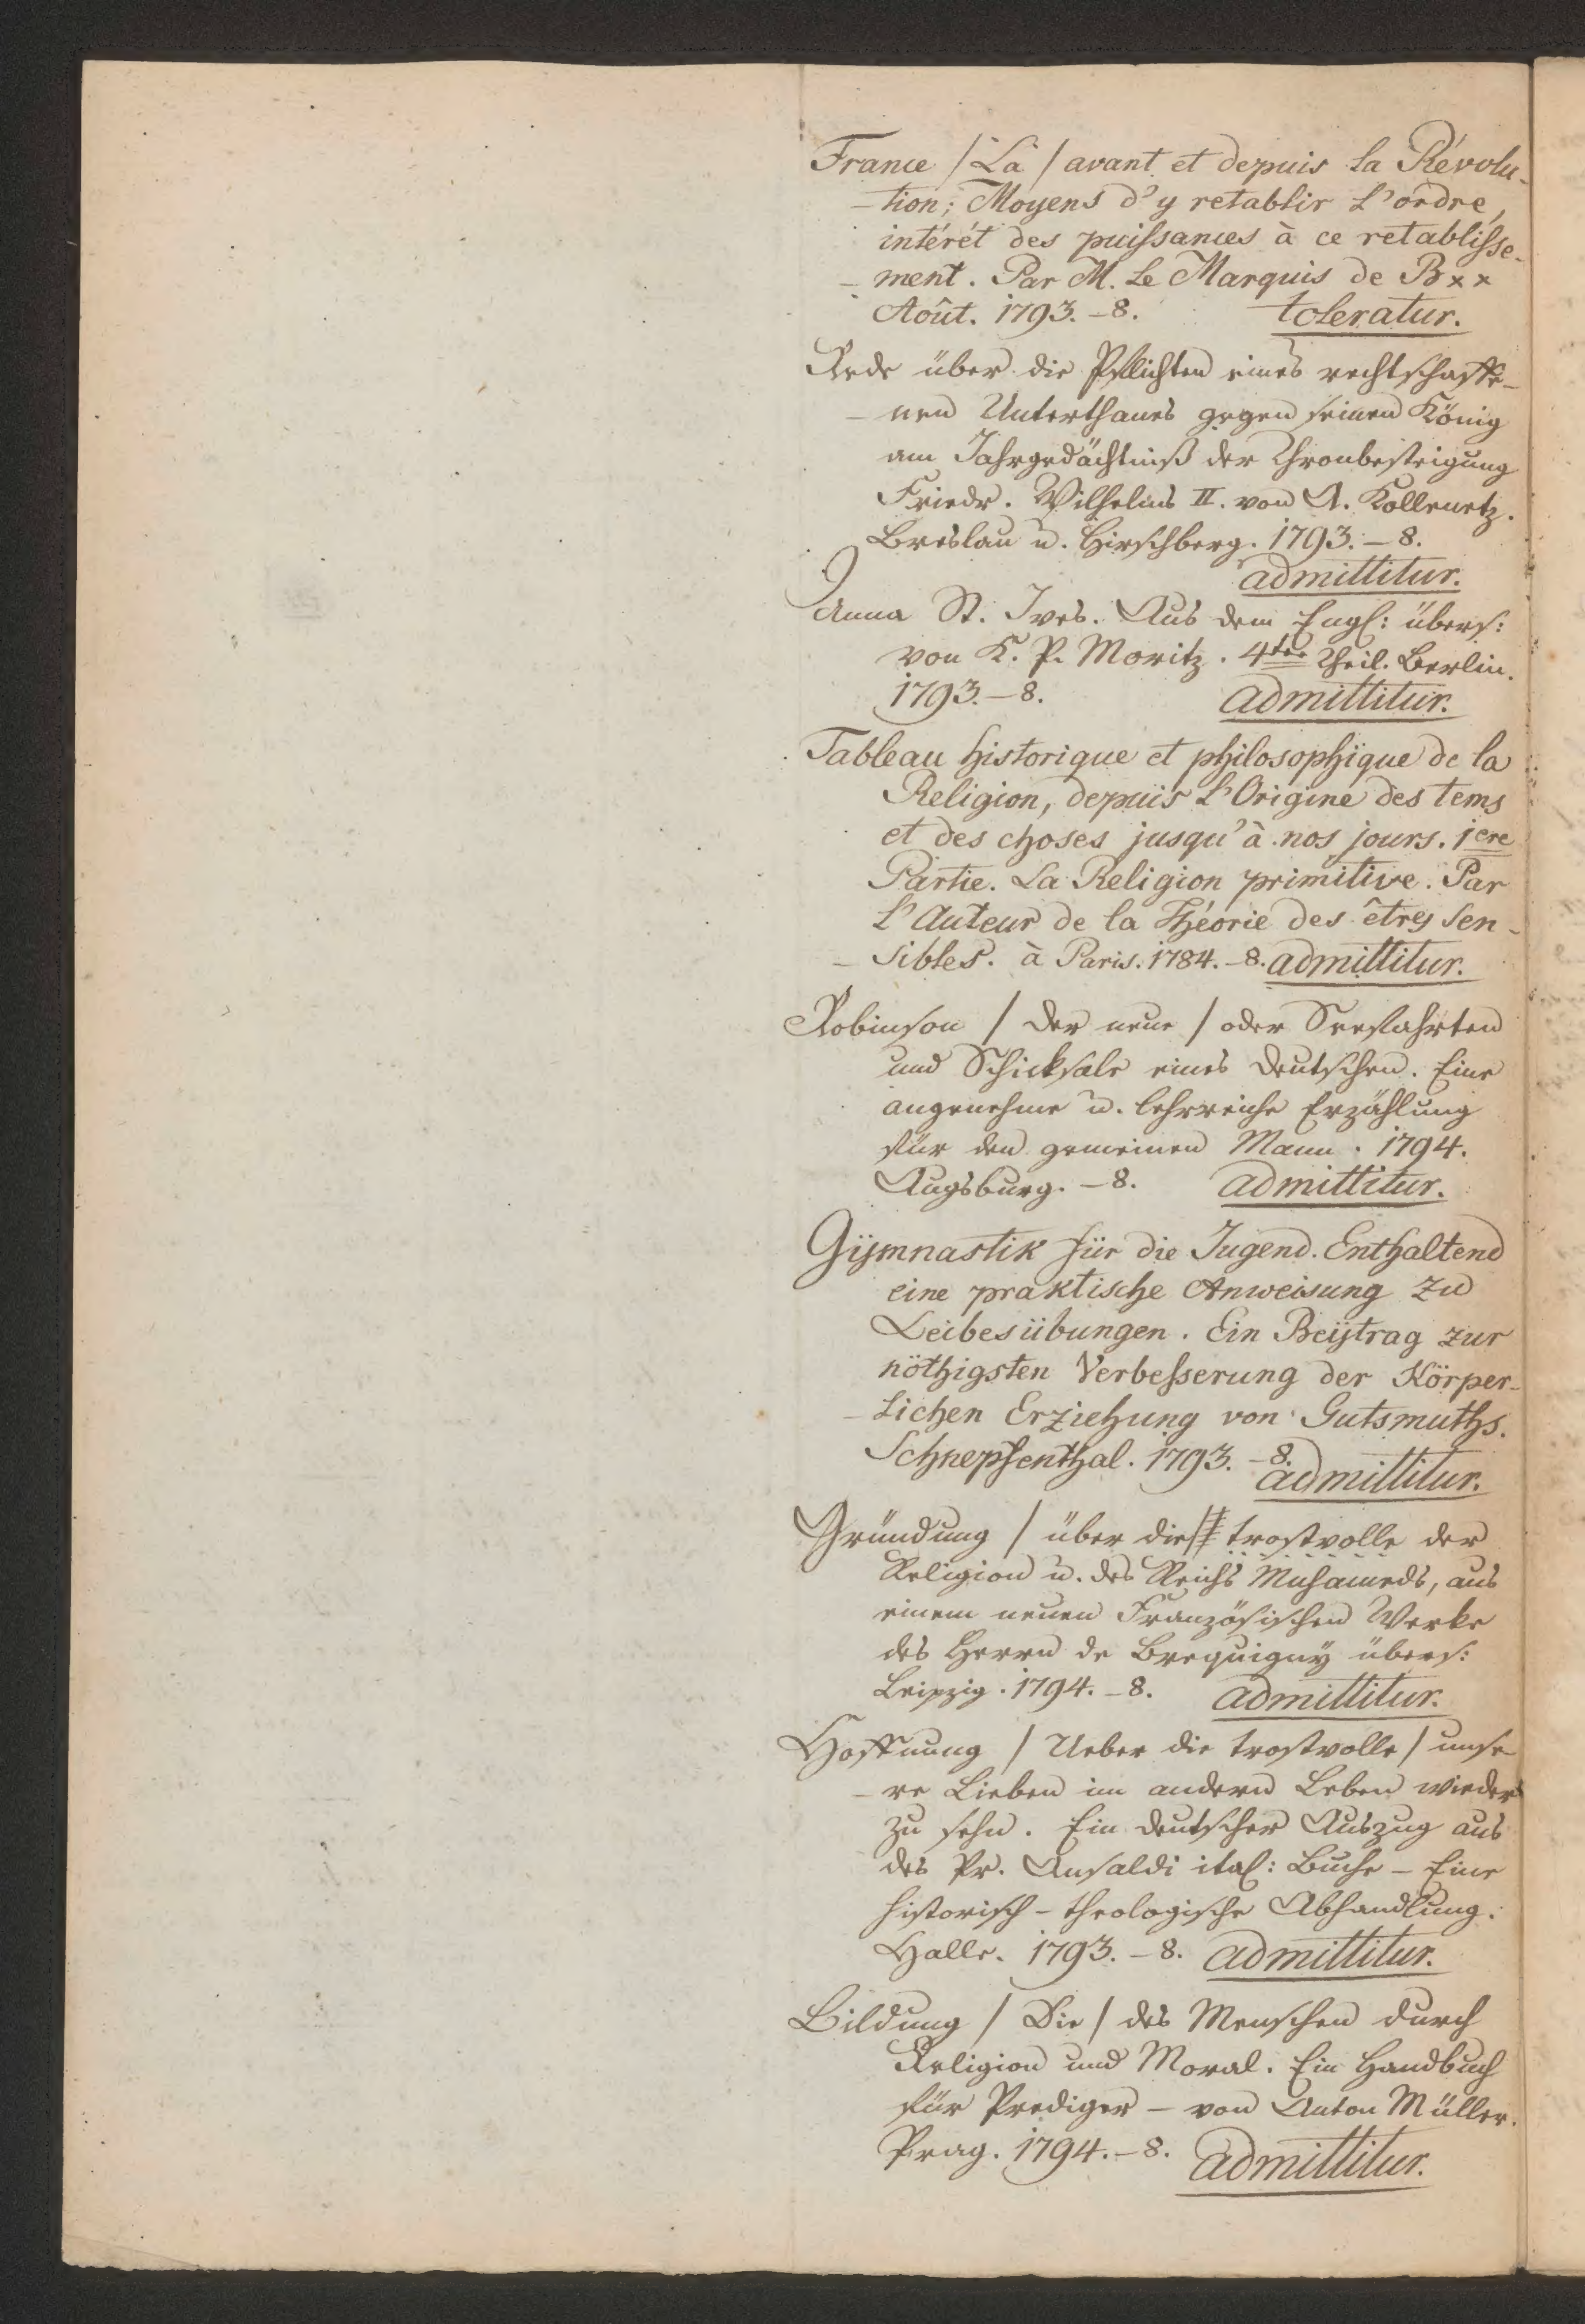 France / La / avant et depuis la Révolu-
-tion; Moyens d'y retablir l'ordre,
intérét des puissances à ce retablisse-
-ment. Par M. le Marquis de B××
Août. 1793. – 8. toleratur.
Rede über die Pflichten eines rechtschaffe-
-nen Unterthanes gegen seinen König
am Jahrgedächtniß der Thronbesteigung
Friedr. Wilhelms II. von A. Kollenetz.
Breslau u. Hirschberg. 1793. – 8.
admittitur.
Anna St. Ives. Aus dem Engl: übers:
von K. P. Moritz. 4ter Theil. Berlin.
1793. – 8. admittitur.
Tableau historique et philosophique de la
Religion, depuis l'Origine des tems
et des choses jusqu'à nos jours. 1ere
Partie. La Religion primitive. Par
l'Auteur de la Théorie des êtres sen-
-sibles. à Paris. 1784. – 8. admittitur.
Robinson / der neue / oder Seefahrten
und Schicksale eines Deutschen. Eine
angenehme u. lehrreiche Erzählung
für den gemeinen Mann. 1794.
Augsburg. – 8. admittitur.
Gymnastik für die Jugend. Enthaltend
eine praktische Anweisung zu
Leibesübungen. Ein Beytrag zur
nöthigsten Verbesserung der Körper-
-lichen Erziehung von Gutsmuths.
Schnepfenthal. 1793. – 8.
admittitur.
Gründung / über die / trostvolle der
Religion u. des Reichs Muhameds, aus
einem neuen Französischen Werke
des Herrn de Brequigny übers:
Leipzig. 1794. – 8. admittitur.
Hoffnung / Ueber die trostvolle / unse-
-re Lieben im andern Leben wieder
zu sehn. Ein deutscher Auszug aus
des Pr. Ansaldi ital: Buche – Eine
historisch-theologische Abhandlung.
Halle. 1793. – 8. admittitur.
Bildung / Die / des Menschen durch
Religion und Moral. Ein Handbuch
für Prediger – von Anton Müller.
Prag. 1794. – 8. admittitur.